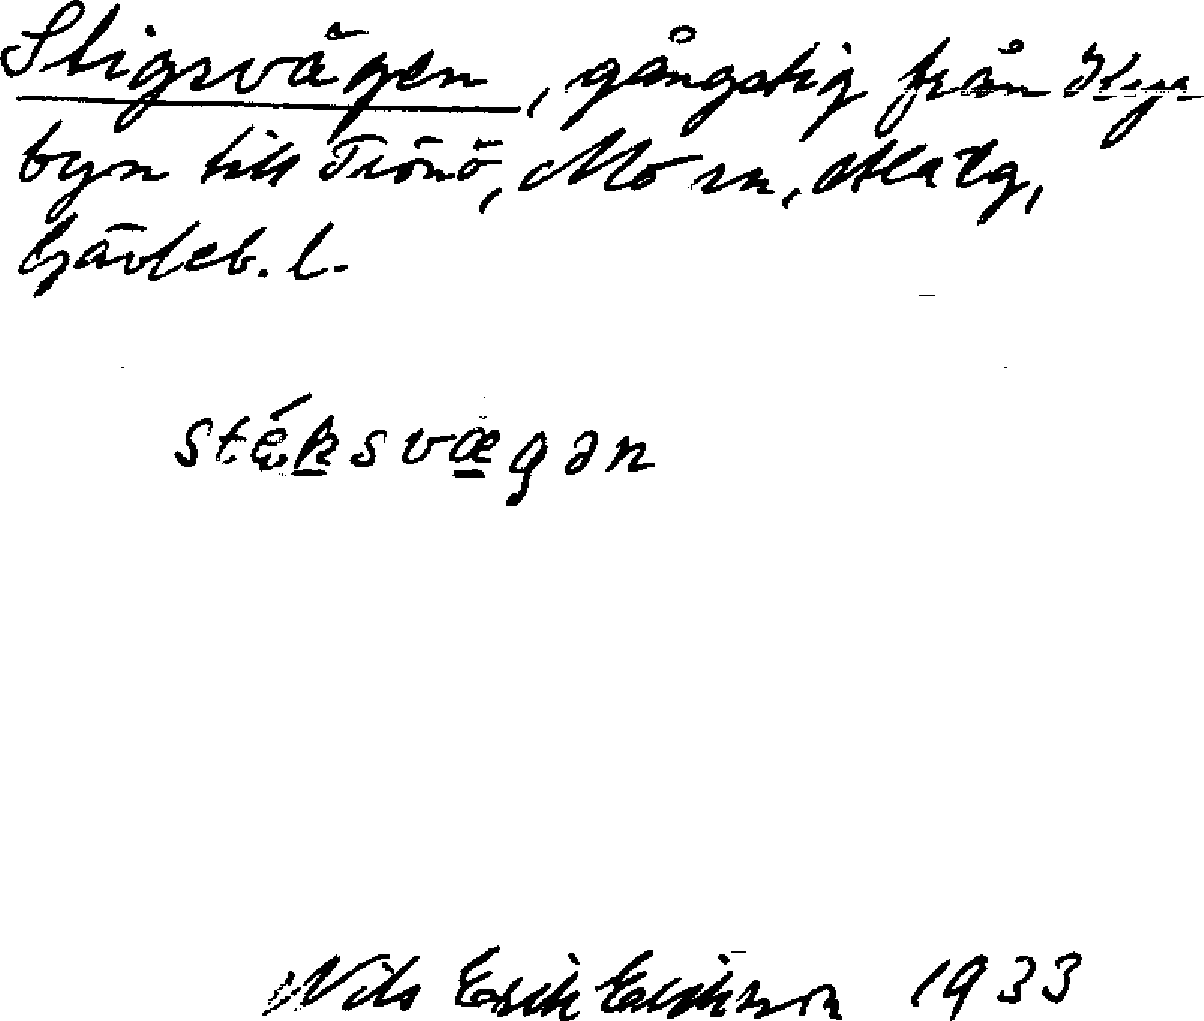 Stigsvägen, gångstig från Kyr
byn till Trönö, Mo sn, Ala tg,
Gävleb. l.
stéksvægən
Nils Erik Eriksson 1933